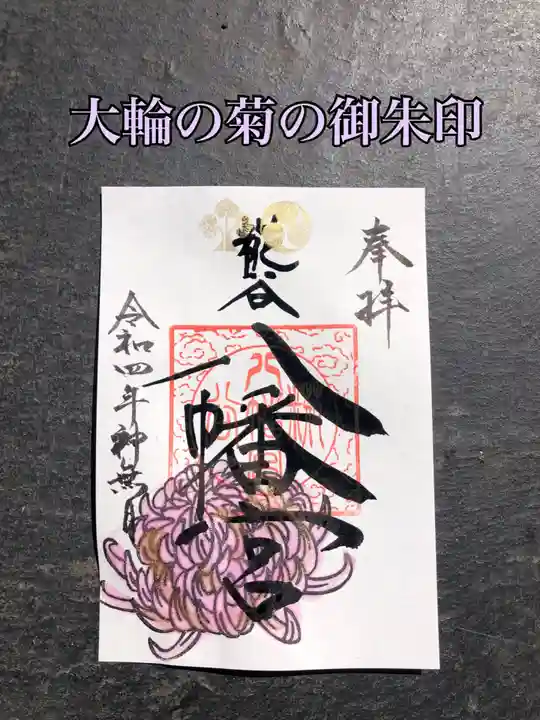 大輪の菊の御朱印
奉拝
熊谷
八幡宮
令和四年神無月